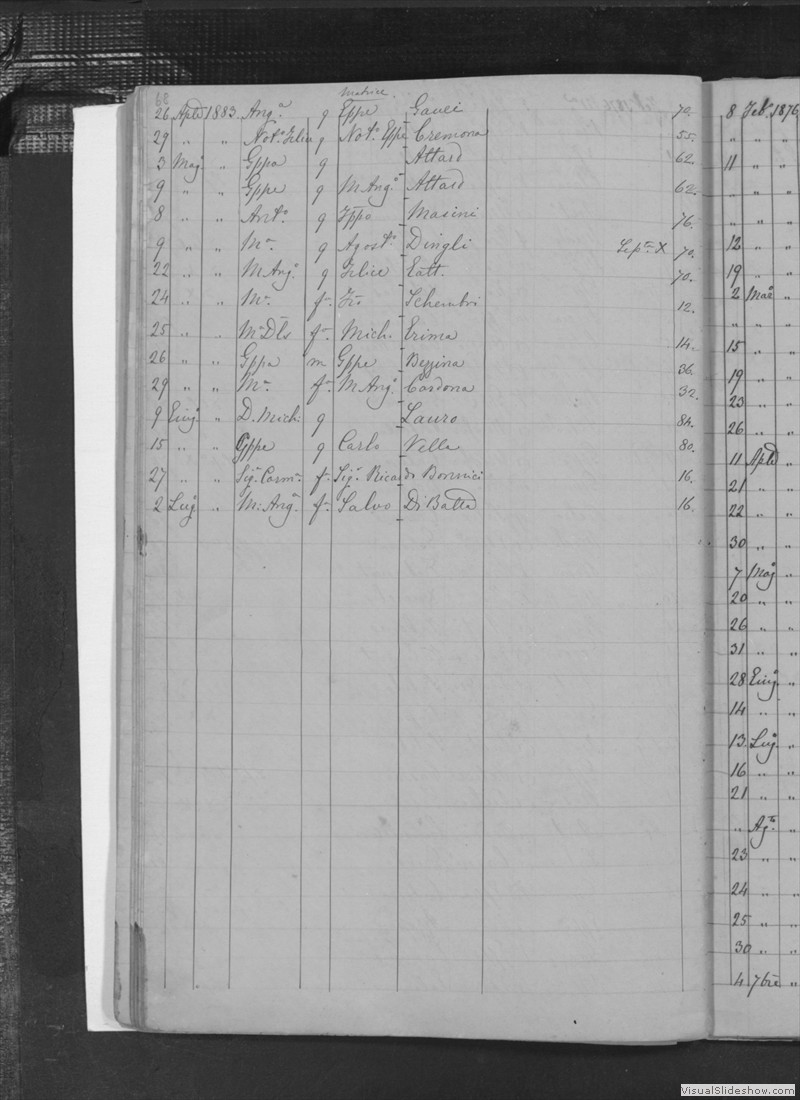 68 matrice
26 Aple 1883 Ang.a g Gppe Gauci 70.
29 " " Not.o Felice g Not.o Gppe Cremona 55.
3 Mag. " Gppa g Attard 62.
9 " " Gppe g M Ang.a Attard 62.
8 " " Ant.o g Masini 76.
9 " " M.a g Agost.o Dingli X 70.
22 " " M Ang.a g Felice 70.
24 " " M.a f. Fr. Schembri 12.
25 " " f. Mich. Erima 14.
26 " " Gppa m Gppe Bezzina 36.
29 " " M.a f. M Ang.o Cardona 32.
9 Giug. " D. Mich. g Lauro 84.
15 " " Gppe g Carlo Vella 80.
27 " " Sig. Carm.a f. Sig. Ricardo Bonnici 16.
2 Lug. " M. Ang.a f. Salvo Di Batta 16.
8 Feb.o 1876
" " "
11 " "
" " "
12 " "
19 " "
2 "
" " "
15 " "
19 " "
23 " "
26 " "
11 Aple "
21 " "
22 " "
30 " "
7 Mag. "
20 " "
26 " "
31 " "
28 Giug. "
14 " "
13 Lug. "
16 " "
21 " "
" Ag.to "
23 " "
24 " "
25 " "
30 " "
4 7bre "
VisualSlideshow.com